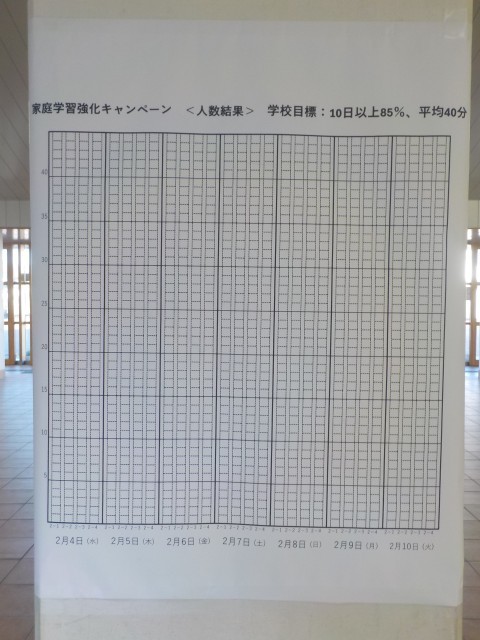 家庭学習強化キャンペーン　＜人数結果＞　学校目標：10日以上85％、平均40分
40
35
30
25
20
15
10
5
2月4日（水） 2月5日（木） 2月6日（金） 2月7日（土） 2月8日（日） 2月9日（月） 2月10日（火）